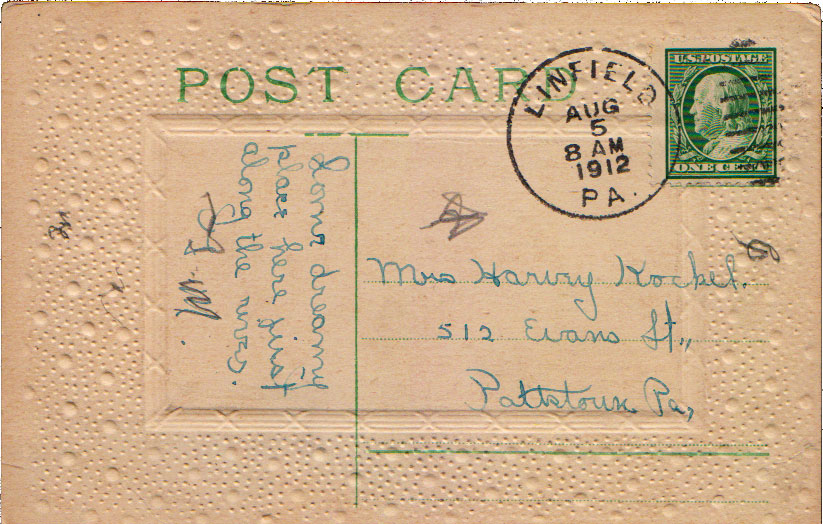 POST CARD
LINFIELD
AUG
5
8 AM
1912
PA.
U.S. POSTAGE
ONE CENT
Some dreamy
place here just
along the river.
Mrs Harvey Kockel.
512 Evans St.,
Pottstown Pa,